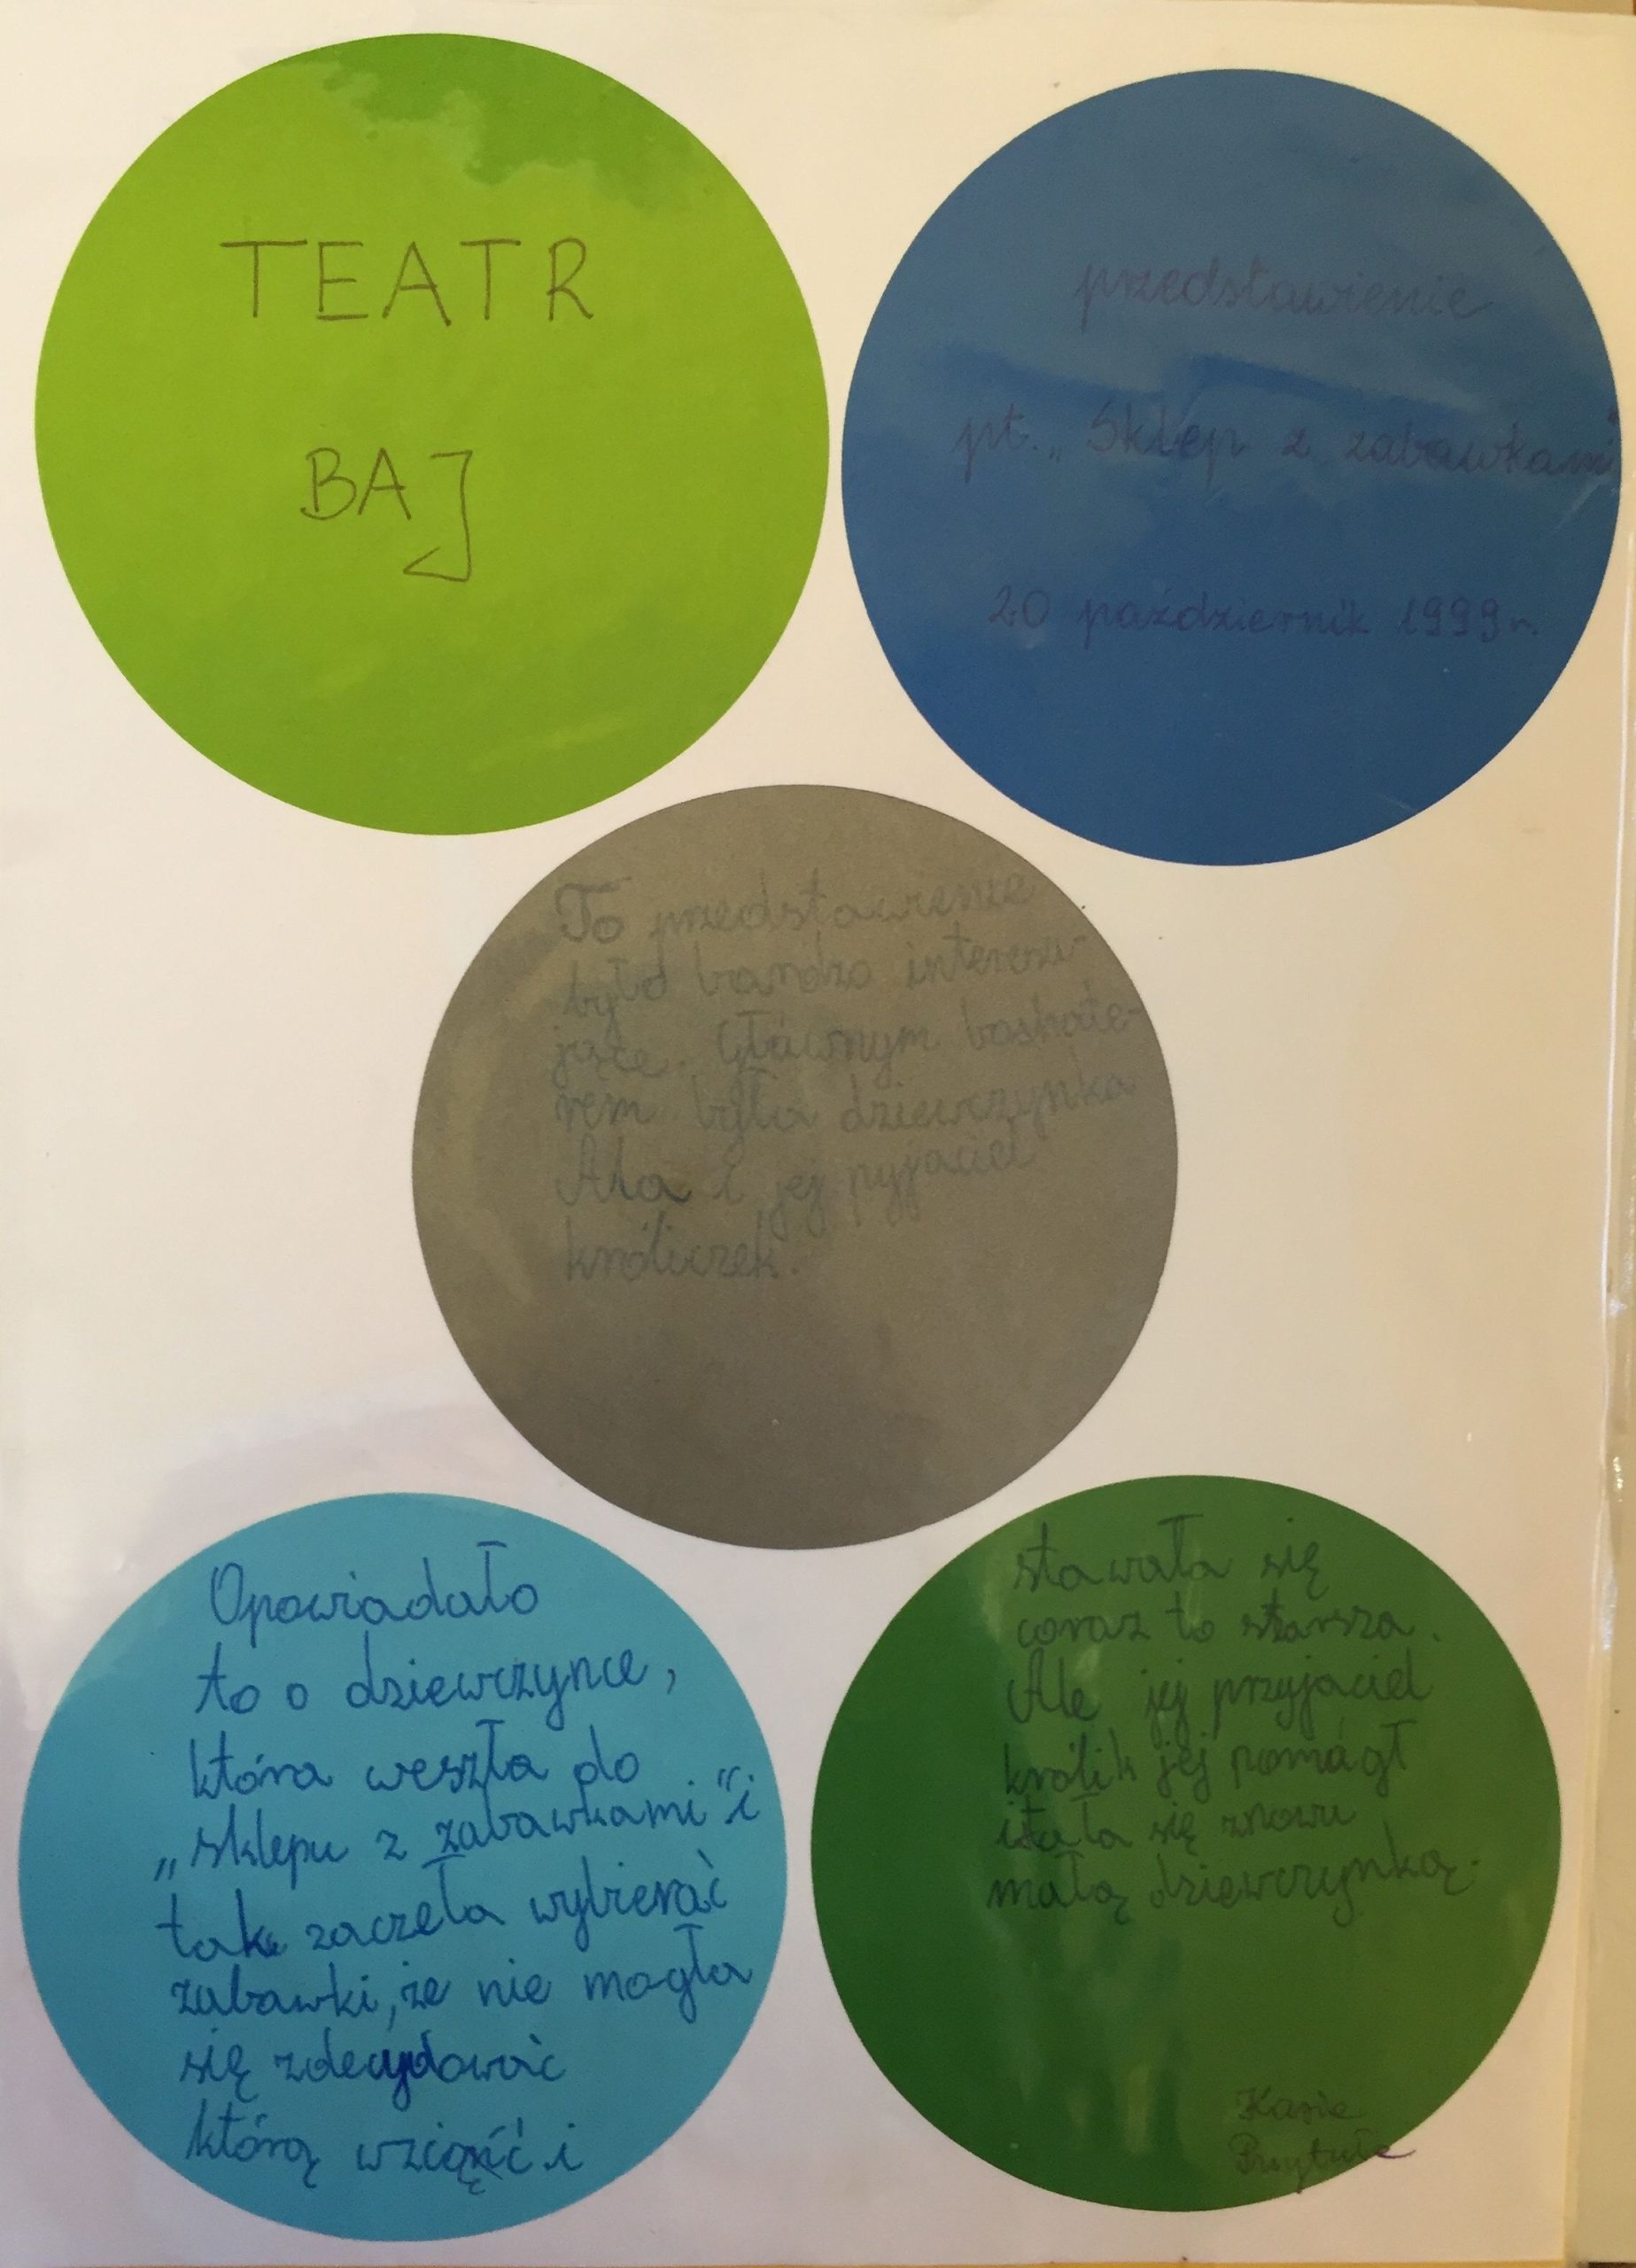 TEATR
BAJ
przedstawienie
pt. „Sklep z zabawkami"
20 październik 1999 r.
To przedstawienie
było bardzo interesu-
jące. Głównym boshate-
rem była dziewczynka
Ala i jej pyjaciel
króliczek.
Opowiadało
to o dziewczynce,
która weszła do
„sklepu z zabawkami" i
tak zaczeła wybierać
zabawki, że nie mogła
się zdecydować
którą wziąść i
stawała się
coraz to starsza.
Ale jej przyjaciel
królik jej pomógł
i stała się znowu
małą dziewczynką.
Kasia